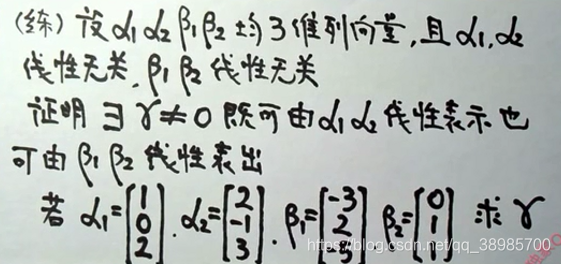 (练) 设 α₁ α₂ β₁ β₂ 均 3 维列向量, 且 α₁, α₂
线性无关, β₁ β₂ 线性无关
证明 ∃ γ ≠ 0 既可由 α₁ α₂ 线性表示也
可由 β₁ β₂ 线性表出
若 α₁ = [1 0 2] . α₂ = [2 -1 3] . β₁ = [-3 2 -5] β₂ = [0 1 1] 求 γ
https://blog.csdn.net/qq_38985700